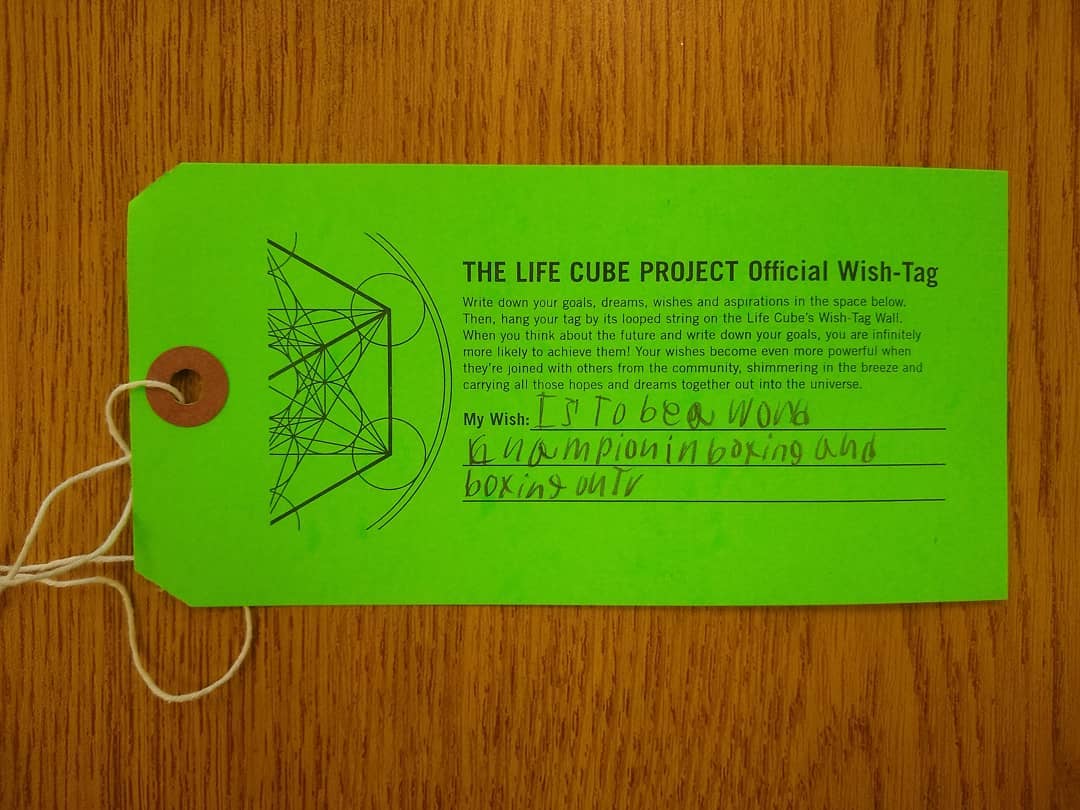 THE LIFE CUBE PROJECT Official Wish-Tag
Write down your goals, dreams, wishes and aspirations in the space below.
Then, hang your tag by its looped string on the Life Cube's Wish-Tag Wall.
When you think about the future and write down your goals, you are infinitely
more likely to achieve them! Your wishes become even more powerful when
they're joined with others from the community, shimmering in the breeze and
carrying all those hopes and dreams together out into the universe.
My Wish: Is To be a
champion in boxing and
boxing on Tv